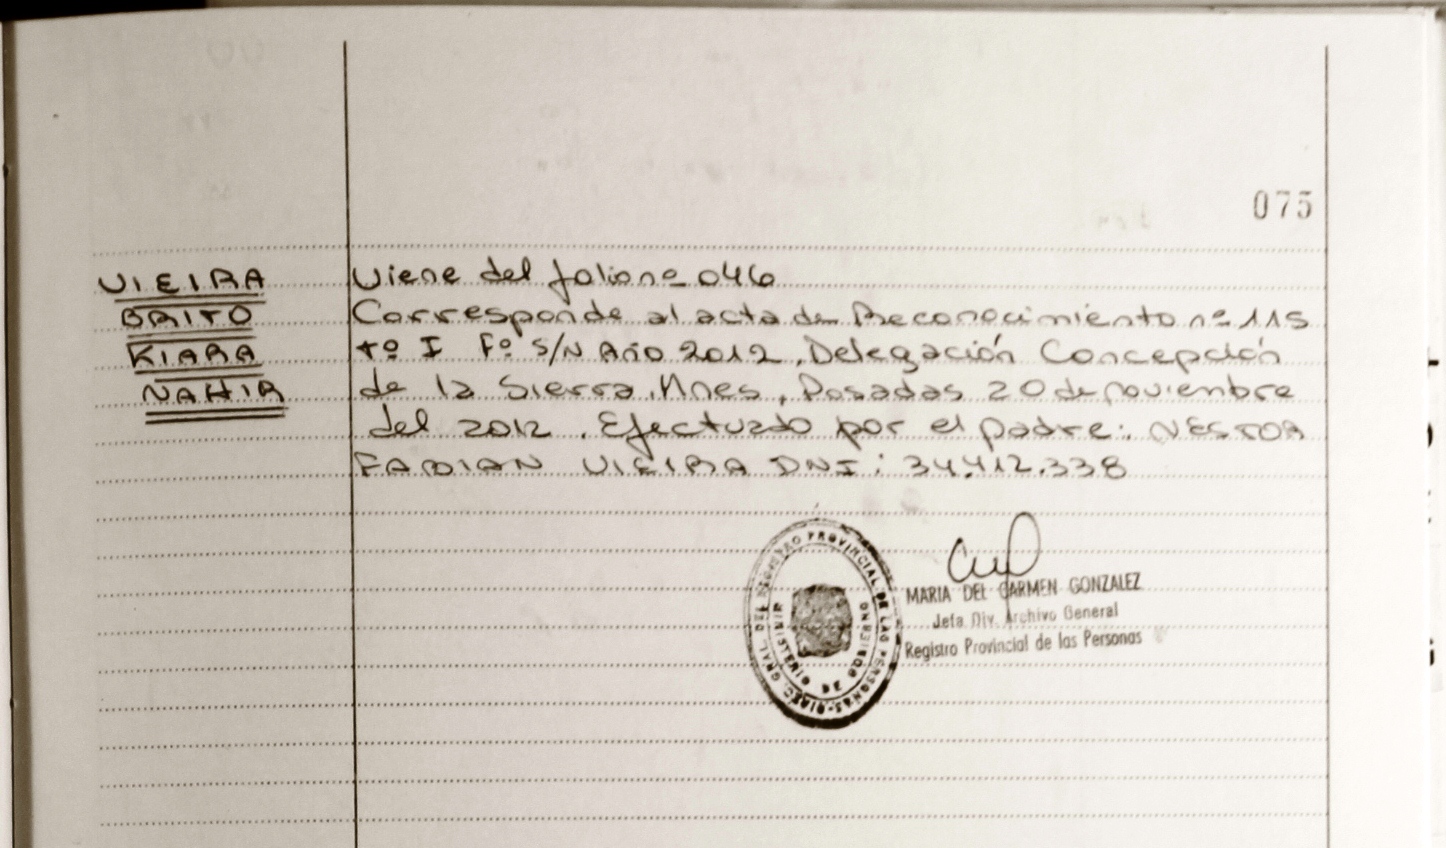 075
VIEIRA
BRITO
KIARA
NAHIR
Viene del folio nº 046
Corresponde al acta de Reconocimiento nº 115
Tº I Fº S/N Año 2012, Delegación Concepción
de la Sierra, Mnes, Posadas 20 de noviembre
del 2012. Efectuado por el padre: NESTOR
FABIAN VIEIRA DNI: 34.412.338
DIREC. GRAL. DEL REGISTRO PROVINCIAL DE LAS PERSONAS
MINISTERIO DE GOBIERNO
MARIA DEL CARMEN GONZALEZ
Jefa Div. Archivo General
Registro Provincial de las Personas